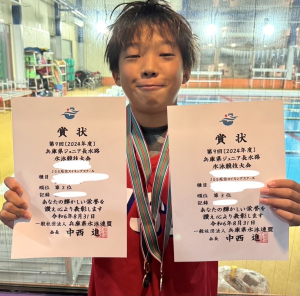 賞状
第9回【2024年度】
兵庫県ジュニア長水路
水泳競技大会
種目
順位 第3位
記録
あなたの輝かしい栄誉を
讃え心より表彰します
令和6年8月31日
一般社団法人 兵庫県水泳連盟
会長 中西 進
賞状
第9回【2024年度】
兵庫県ジュニア長水路
水泳競技大会
種目
順位
記録
あなたの輝かしい栄誉を
讃え心より表彰します
令和6年8月31日
一般社団法人 兵庫県水泳連盟
会長 中西 進